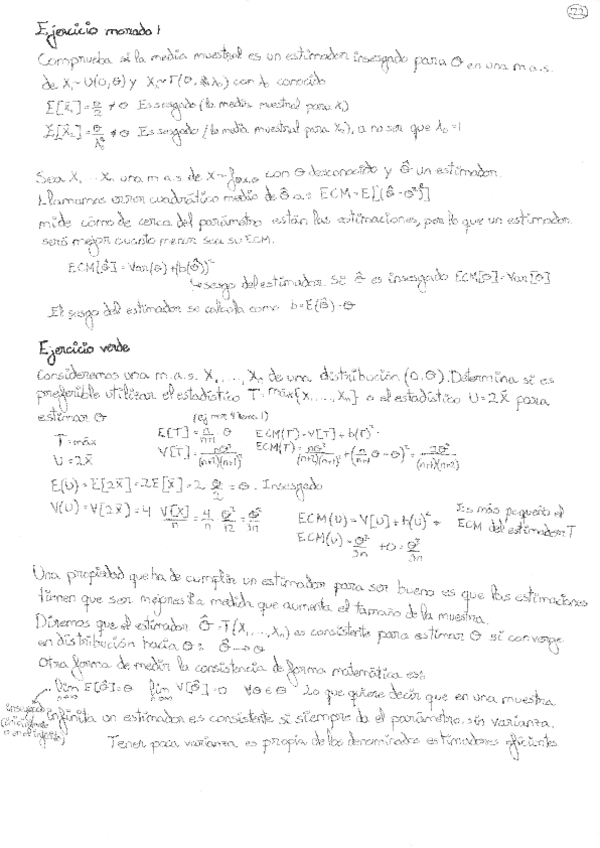 22
Ejercicio morado 1
Comprueba si la media muestral es un estimador insesgado para θ en una m.a.s.
de X₁~U(0,θ) y X₂~Γ(θ, λ₀) con λ₀ conocido
E[X̄₁]=θ/2 ≠ θ Es sesgado (la media muestral para X₁)
≠ θ Es sesgado (la media muestral para X₂), a no ser que λ₀=1
Sea X₁ ... Xₙ una m.a.s. de X~ con θ desconocido y θ̂ un estimador.
Llamamos error cuadrático medio de θ̂ a: ECM=E[(θ̂-θ)²]
mide cómo de cerca del parámetro están las estimaciones, por lo que un estimador
será mejor cuanto menor sea su ECM.
ECM[θ̂]=Var(θ̂)+(b(θ̂))²
↳ sesgo del estimador. Si θ̂ es insesgado ECM[θ̂]=Var[θ̂]
El sesgo del estimador se calcula como b=E(θ̂)-θ
Ejercicio verde
Consideremos una m.a.s. X₁,...,Xₙ de una distribución (0,θ). Determina si es
preferible utilizar el estadístico T=máx{X₁,...,Xₙ} o el estadístico U=2X̄ para
estimar θ
T=máx E[T]=n/(n+1)·θ ECM(T)=V[T]+b(T)²
U=2X̄ V[T]=nθ²/((n+2)(n+1)²) ECM(T)=nθ²/((n+2)(n+1)²)+(n/(n+1)θ-θ)²=2θ²/((n+1)(n+2))
E(U)=E[2X̄]=2E[X̄]=2·θ/2=θ. Insesgado
V(U)=V[2X̄]=4 V[X]/n=4/n·θ²/12=θ²/3n ECM(U)=V[U]+b(U)² Es más pequeño el
ECM(U)=θ²/3n+0=θ²/3n ECM del estimador T
Una propiedad que ha de cumplir un estimador para ser bueno es que las estimaciones
tienen que ser mejores a medida que aumenta el tamaño de la muestra.
Diremos que el estimador θ̂=T(X₁,...,Xₙ) es consistente para estimar θ si converge
en distribución hacia θ: θ̂→θ
Otra forma de medir la consistencia de forma matemática es:
lim E[θ̂]=θ lim V[θ̂]=0 ∀θ∈Θ Lo que quiere decir que en una muestra
insesgado
infinita un estimador es consistente si siempre da el parámetro, sin varianza.
Tener poca varianza es propia de los denominados estimadores eficientes